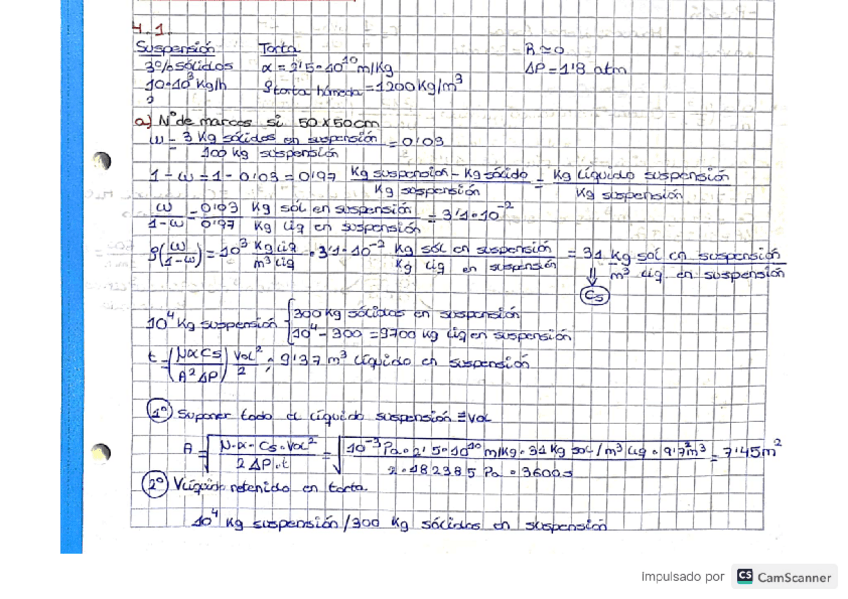 4.1.
Suspensión Torta R≃0
3% sólidos α = 2'5·10^10 m/kg ΔP = 1'8 atm
10·10^3 kg/h ρ torta húmeda = 1200 kg/m^3
?
a) Nº de marcos si 50x50cm
ω = 3 kg sólidos en suspensión / 100 kg suspensión = 0'03
1-ω = 1-0'03 = 0'97 kg suspension - kg sólido / kg suspensión = kg líquido suspensión / kg suspensión
ω / 1-ω = 0'03 / 0'97 kg sól en suspensión / kg liq en suspensión = 3'1·10^-2
ρ(ω / 1-ω) = 10^3 kg liq / m^3 liq · 3'1·10^-2 kg sól en suspensión / kg liq en suspensión = 31 kg sol en suspensión / m^3 liq en suspensión
Cs
10^4 kg suspensión { 300 kg sólidos en suspensión
10^4 - 300 = 9700 kg liq en suspensión
t = (μαCs / A^2 ΔP) Vol^2 / 2 ; 9'7 m^3 líquido en suspensión
1º Suponer todo el líquido suspensión ≡ Vol
A = √(μ·α·Cs·Vol^2 / 2ΔP·t) = √(10^-3 Pa·2'5·10^10 m/kg·31 kg sol/m^3 liq·9'7^2 m^3 / 2·182385 Pa·3600s) = 7'45 m^2
2º V líquido retenido en torta
10^4 kg suspensión / 300 kg sólidos en suspensión
Impulsado por CS CamScanner